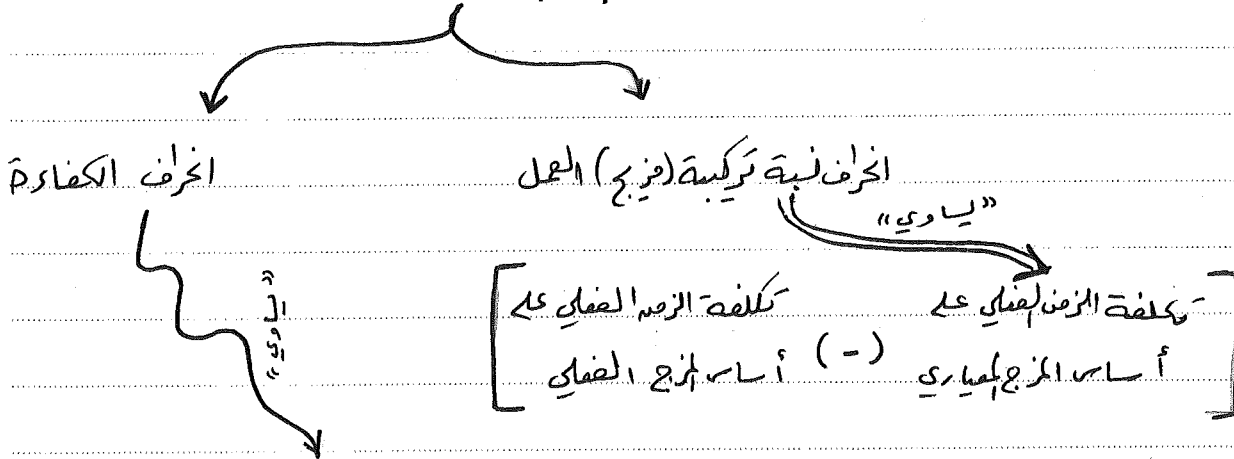 انحراف نسبة تركيبة (مزيج) العمل
انحراف الكفاءة
"يساوي"
"يساوي"
[تكلفة الزمن الفعلي على
أساس المزج المعياري
(-)
تكلفة الزمن الفعلي على
أساس المزج الفعلي]